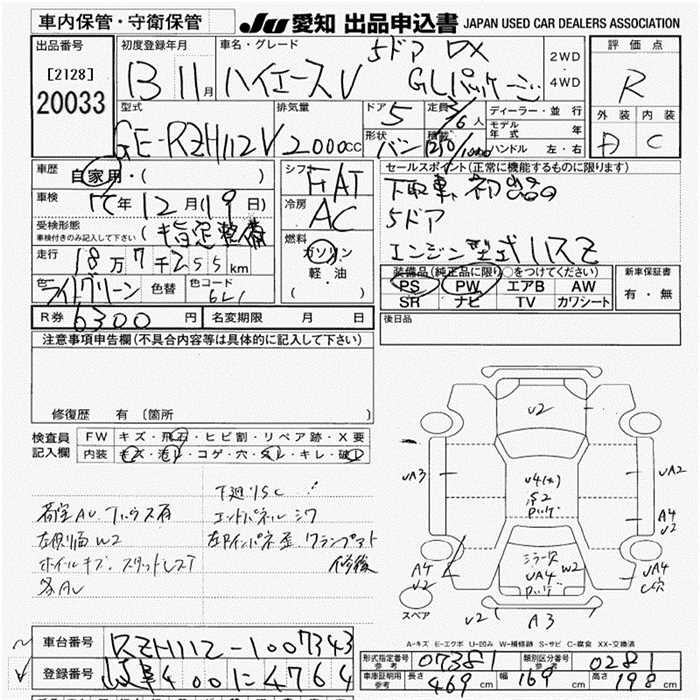 車内保管・守衛保管
JU 愛知 出品申込書 JAPAN USED CAR DEALERS ASSOCIATION
出品番号
[2128]
20033
初度登録年月
13 11月
車名・グレード
5ドア DX
ハイエースV GLパッケージ
2WD
4WD
評価点
R
外装 内装
D C
型式
GE-RZH112V
排気量
2000cc
ドア
5
定員 3/6人
形状
バン
積載
1250/1000
ディーラー・並行
モデル年式 年
ハンドル 左・右
車歴
自家用・( )
車検
15年12月(19日)
受検形態
車検付きのみ記入して下さい
(指定整備
走行
18万7千255km
色
ライトグリーン
色替
色コード
6L1
シフト
FAT
冷房
AC
燃料
ガソリン
軽・油
( )
セールスポイント(正常に機能するものに限ります)
下取車 初出品
5ドア
エンジン型式 1RZ
装備品(純正品に限り○をつけてください)
PS PW エアB AW
SR ナビ TV カワシート
新車保証書
有・無
R券 6300円
名変期限 月 日
後日品
注意事項申告欄(不具合内容等は具体的に記入して下さい)
修復歴 有〔箇所 〕
検査員記入欄
FW キズ・飛石・ヒビ割・リペア跡・X要
内装 キズ・汚レ・コゲ・穴・スレ・キレ・破レ
下廻りSC
荷室AU
エンドパネルシワ
左側面W2
左Rインパネ歪
修後
ホイールキズ スタッドレス
各AU
U2
UA3
UA2
A4
U2
A4
U2
W2
UA4
A4
C穴
スペア
U2
A3
A-キズ E-エクボ U-凹み W-補修跡 S-サビ C-腐食 XX-交換済
車台番号
RZH112-1007343
登録番号
岐阜400に4764
形式指定番号
参考
07381
類別区分番号
参考
0281
車庫証明用
参考
長さ 469cm
幅 169cm
高さ 198cm